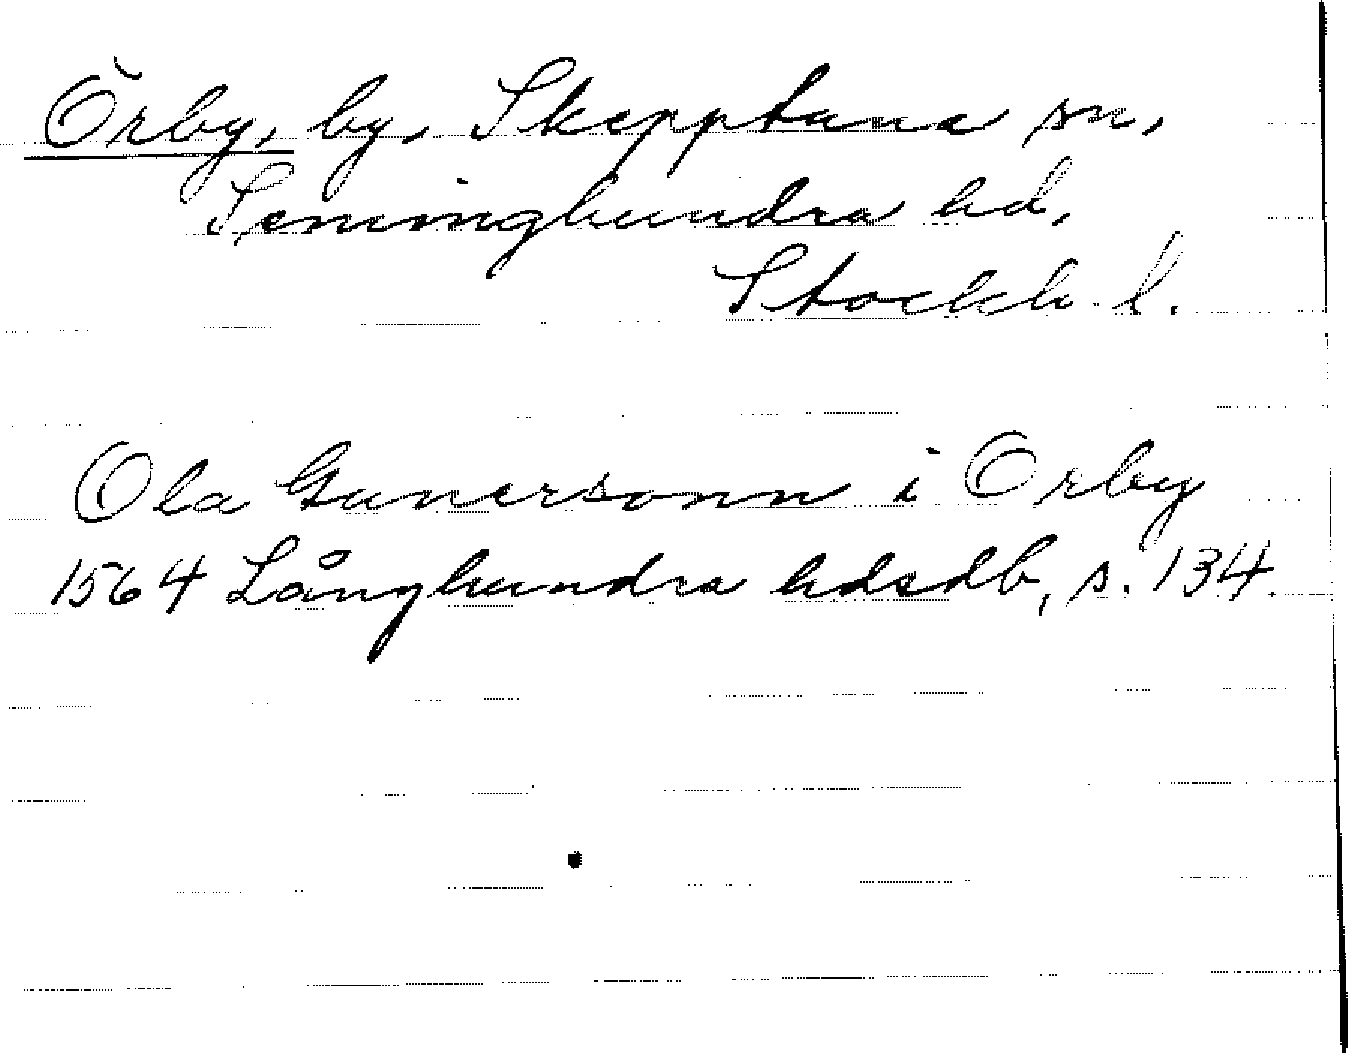 Örby, by, Skepptuna sn,
Seminghundra hd,
Stockh. l.
Ola Gunersonn i Orby
1564 Långhundra hdsdb, s. 134.